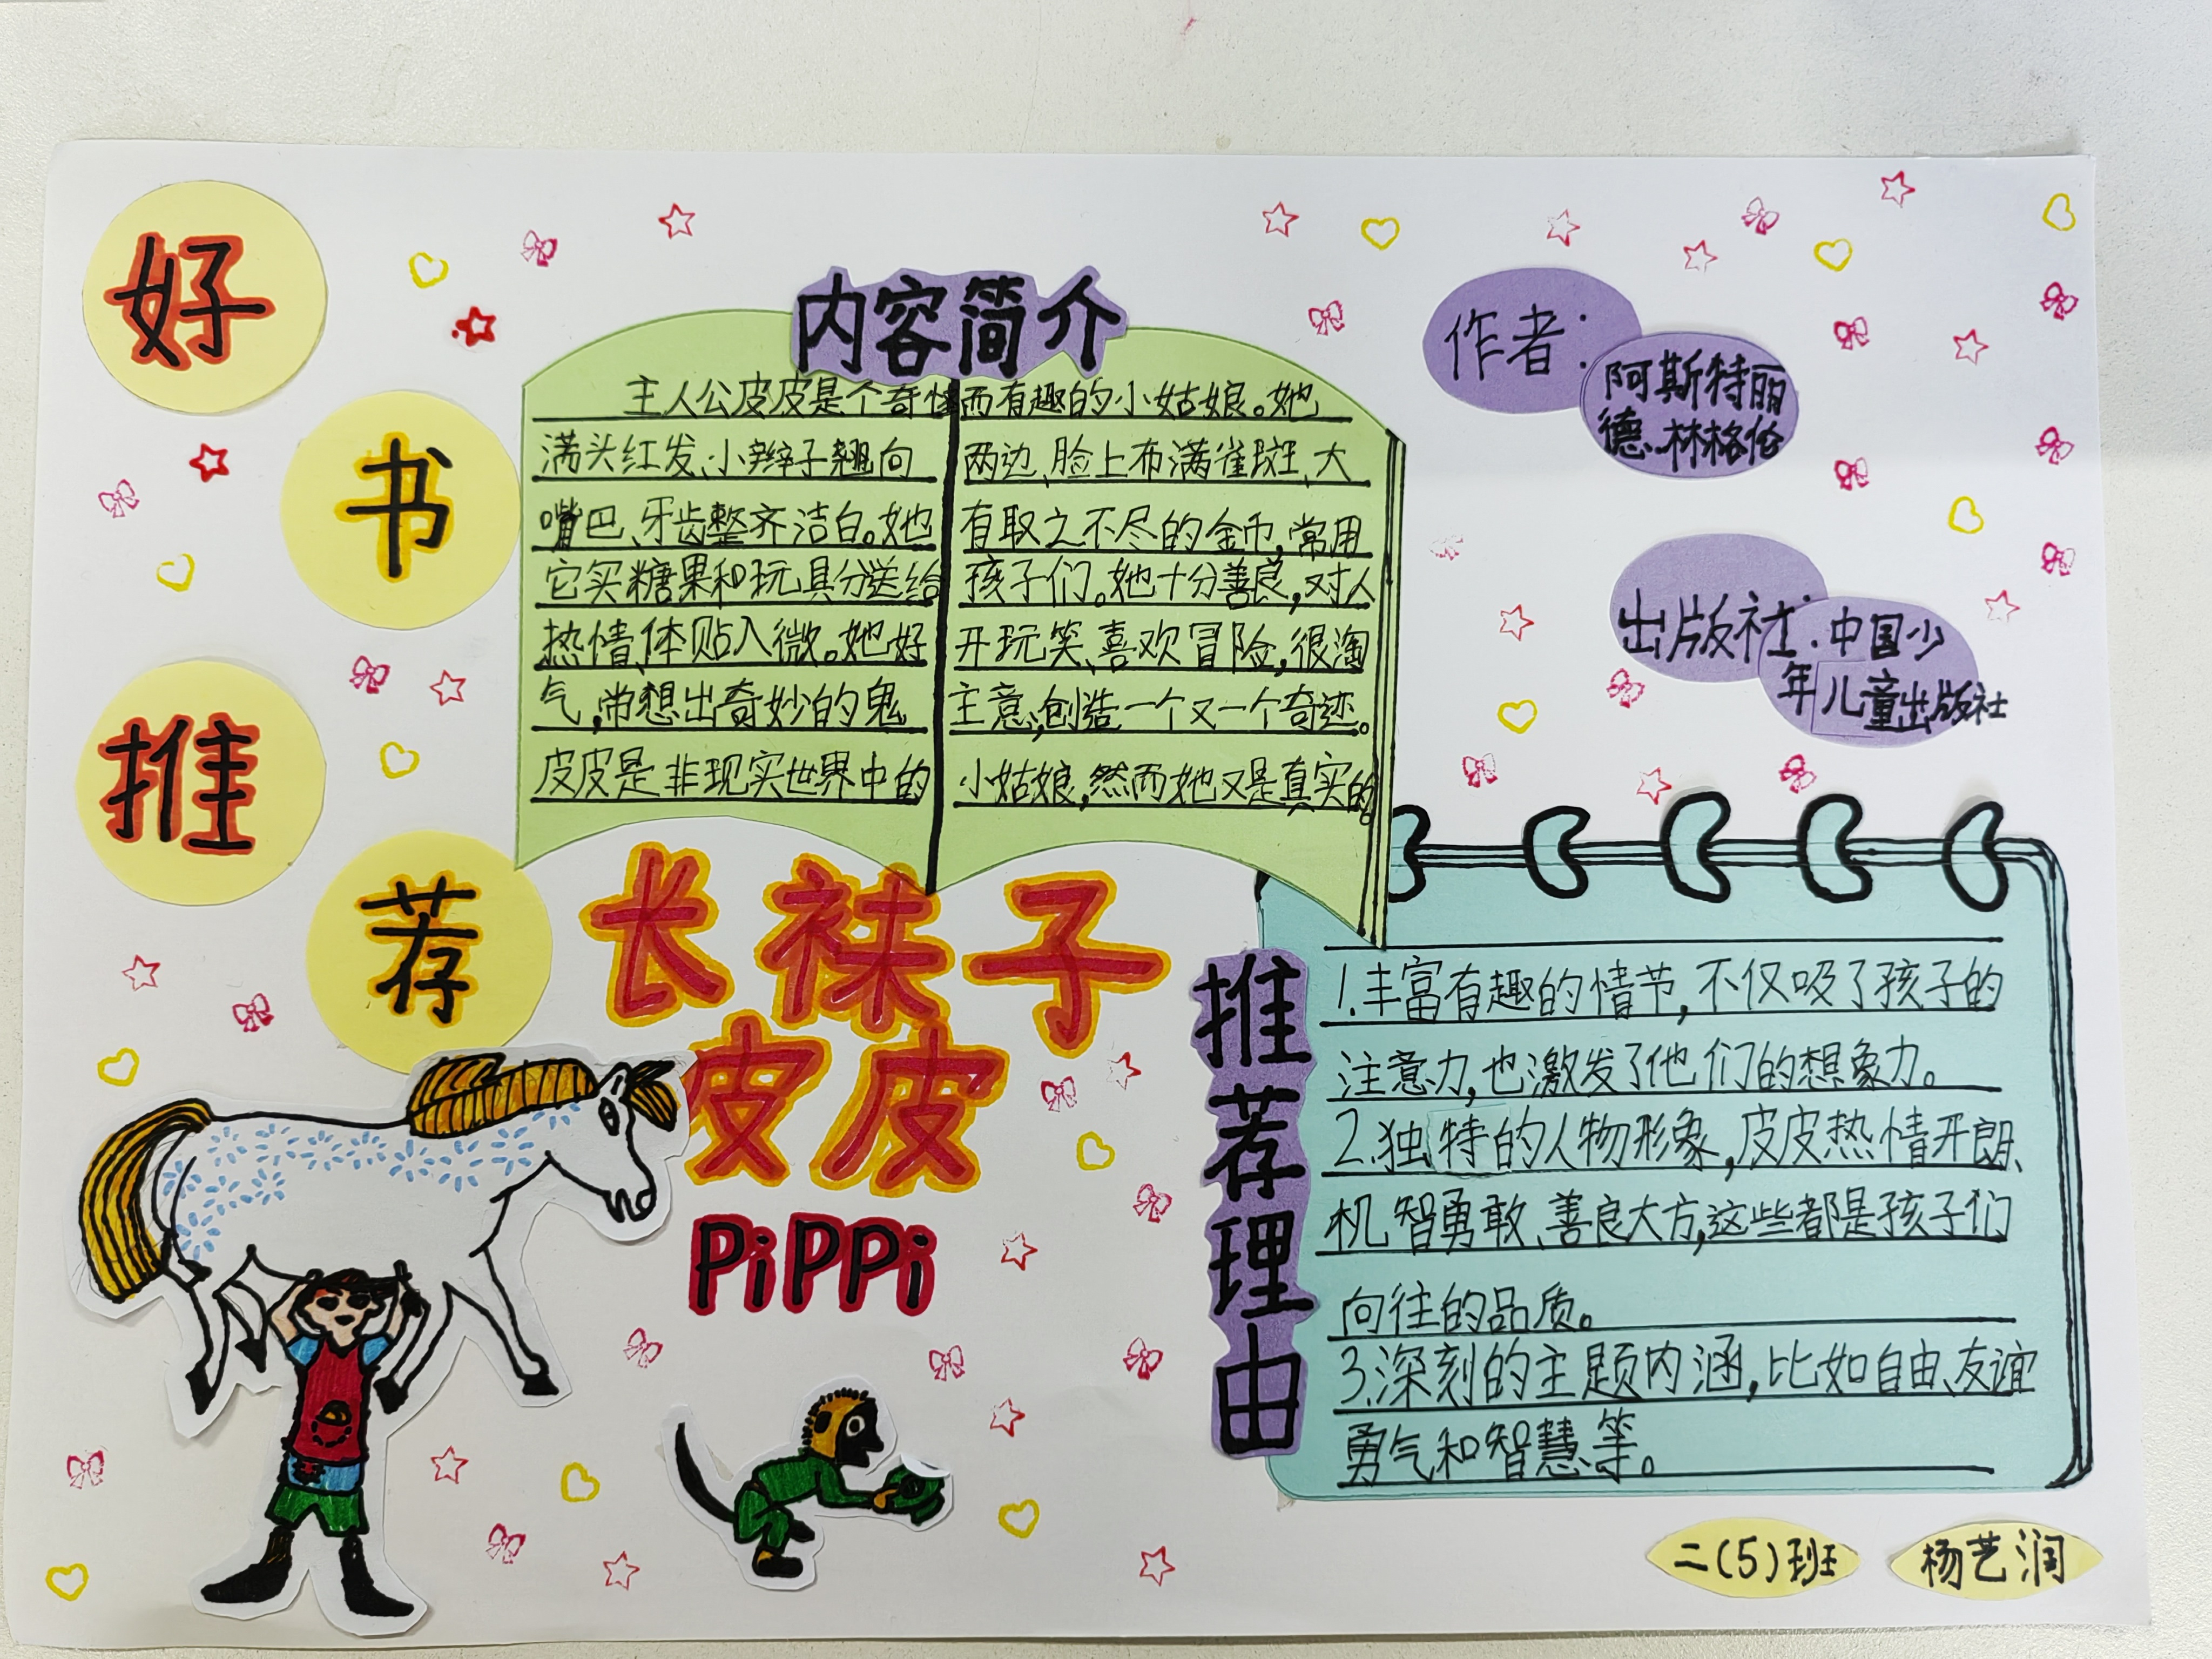 好
书
推
荐
内容简介
主人公皮皮是个奇怪而有趣的小姑娘。她
满头红发、小辫子翘向两边、脸上布满雀斑、大
嘴巴、牙齿整齐洁白。她有取之不尽的金币,常用
它买糖果和玩具分送给孩子们。她十分善良,对人
热情、体贴入微。她好开玩笑、喜欢冒险,很淘
气,常想出奇妙的鬼主意,创造一个又一个奇迹。
皮皮是非现实世界中的小姑娘,然而她又是真实的
作者:
阿斯特丽
德.林格伦
出版社:中国少
年儿童出版社
长袜子
皮皮
PiPPi
推荐理由
1.丰富有趣的情节,不仅吸了孩子的
注意力,也激发了他们的想象力。
2.独特的人物形象,皮皮热情开朗、
机智勇敢、善良大方,这些都是孩子们
向往的品质。
3.深刻的主题内涵,比如自由、友谊
勇气和智慧等。
二(5)班
杨艺润